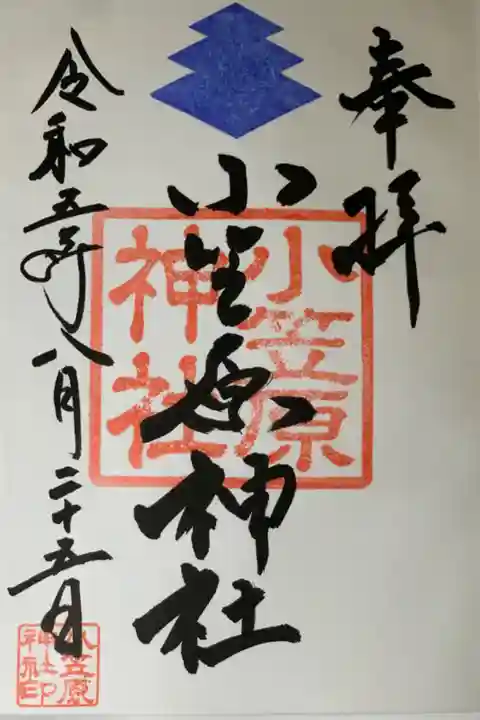 奉拝
小笠原神社
小笠原
神社
令和五年八月二十五日
小笠原
神社印